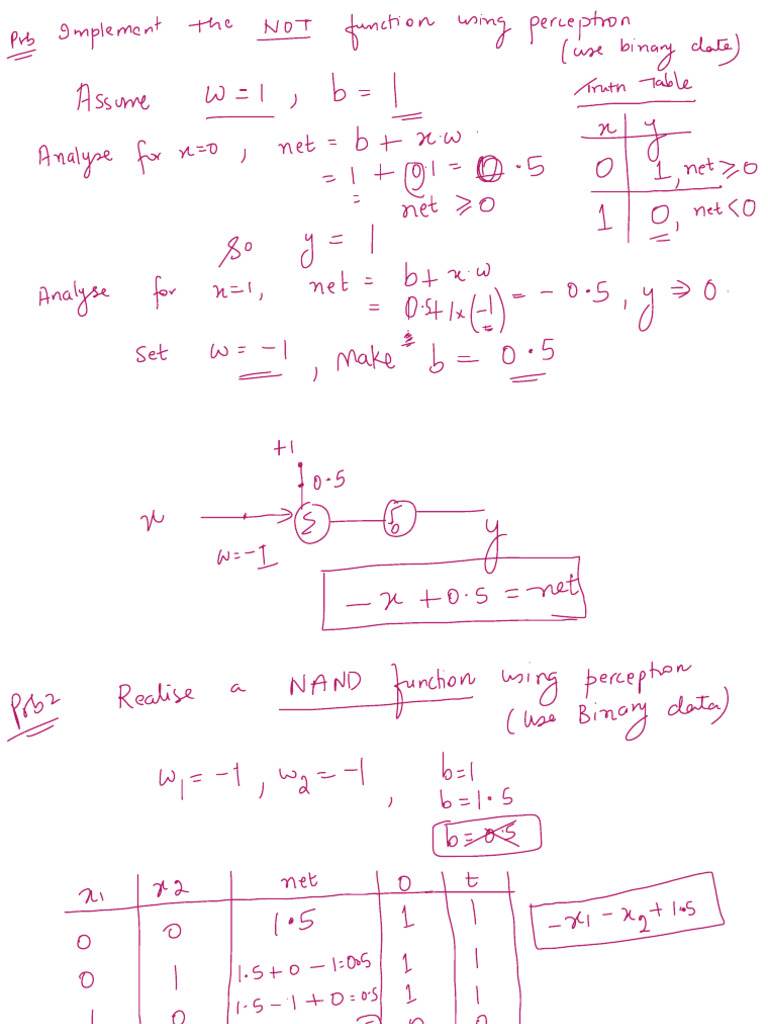 Prb Implement the NOT function using perceptron
(use binary data)
Assume w = 1 , b = 1
Truth Table
x y
0 1, net ≥ 0
1 0, net < 0
Analyse for x=0 , net = b + x.w
= 1 + 0.1 = 0.5
= net ≥ 0
So y = 1
Analyse for x=1, net = b + x.w
= 0.5+1x(-1) = -0.5, y ⇒ 0.
Set w = -1 , Make b = 0.5
+1
0.5
x Σ f y
w=-1
-x + 0.5 = net
Prb2 Realise a NAND function using perceptron
(use Binary data)
w1 = -1 , w2 = -1 , b=1
b=1.5
b=0.5
x1 x2 net 0 t
0 0 1.5 1 1
-x1 - x2 + 1.5
0 1 1.5+0-1=0.5 1 1
1 0 1.5-1+0=0.5 1 1